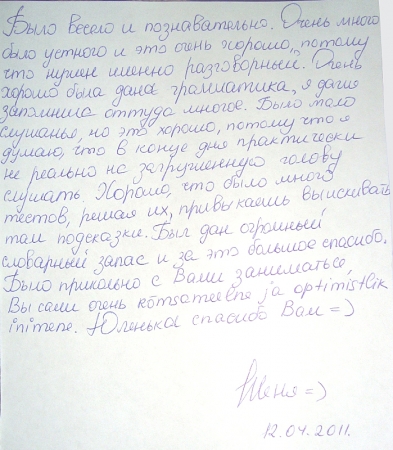 Было весело и познавательно. Очень много
было устного и это очень хорошо, потому
что нужен именно разговорный. Очень
хорошо была дана грамматика, я даже
запомнила оттуда многое. Было мало
слушанья, но это хорошо, потому что я
думаю, что в конце дня практически
не реально на загруженную голову
слушать. Хорошо, что было много
тестов, решая их, привыкаешь выискивать
там подсказки. Был дан огромный
словарный запас и за это большое спасибо.
Было прикольно с Вами заниматься,
Вы сами очень kõmsameelne ja optimistlik
inimene. Юленька спасибо Вам =)
Женя =)
12.04.2011.